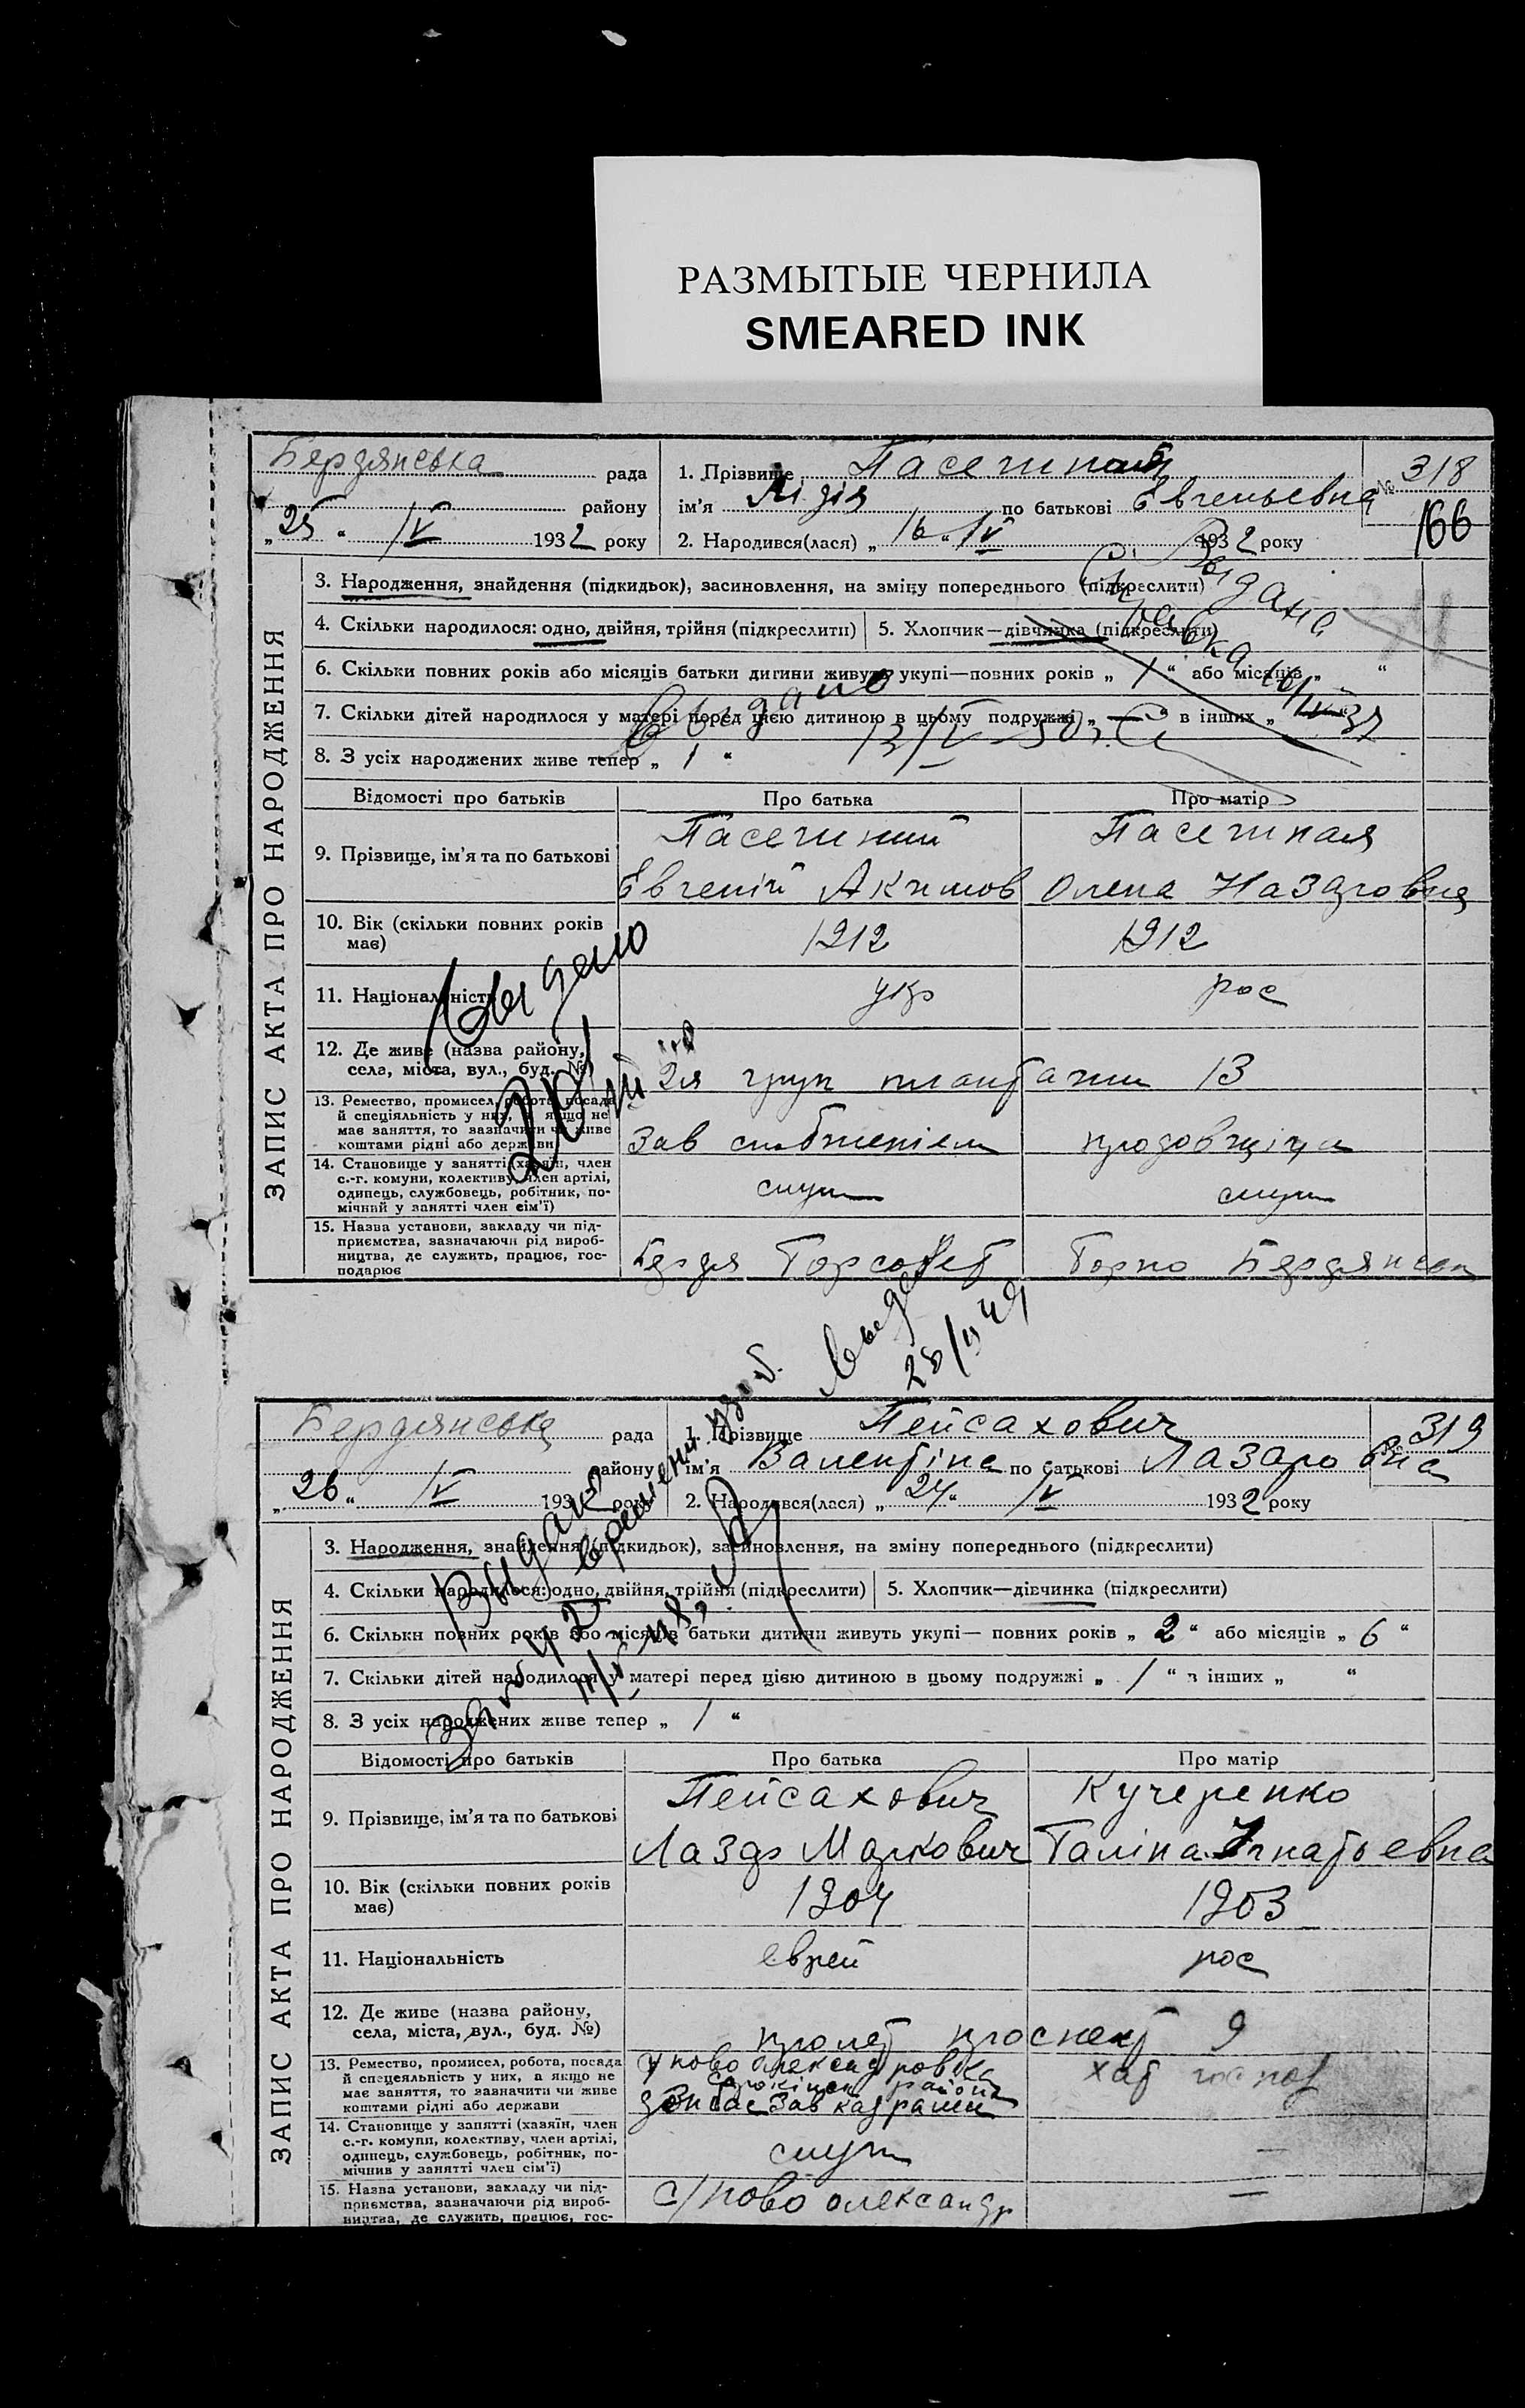 РАЗМЫТЫЕ ЧЕРНИЛА
SMEARED INK
Бердянська рада
району
„25“ IV 1932 року
1. Прізвище
ім'я Лідія по батькові Евгеньевна
2. Народився(лася) „16“ IV 1932 року
№ 318
166
ЗАПИС АКТА ПРО НАРОДЖЕННЯ
3. Народження, знайдення (підкидьок), засиновлення, на зміну попереднього (підкреслити)
4. Скільки народилося: одно, двійня, трійня (підкреслити)
5. Хлопчик—дівчинка (підкреслити)
Выдана
справка
6. Скільки повних років або місяців батьки дитини живуть укупі—повних років „ 1 “ або місяців „ “
7. Скільки дітей народилося у матері перед цією дитиною в цьому подружжі „ — “ в інших „
выдано
8. З усіх народжених живе тепер „ 1 “
Відомості про батьків
Про батька
Про матір
9. Прізвище, ім'я та по батькові
Пасечний
Евгеній Акимов
Пасечная
Олена Назаровна
10. Вік (скільки повних років має)
1912
1912
11. Національність
укр
рос
Выдано
12. Де живе (назва району, села, міста, вул., буд. №)
13
13. Ремество, промисел, робота, посада
й спеціяльність у них, а якщо не
має заняття, то зазначити чи живе
коштами рідні або держави
Зав
продовщіца
14. Становище у занятті (хазяїн, член
с.-г. комуни, колективу, член артілі,
одинець, службовець, робітник, по-
мічний у занятті член сім'ї)
служ
служ
15. Назва установи, закладу чи під-
приємства, зазначаючи рід вироб-
ництва, де служить, працює, гос-
подарює
Бердя Горсовет
Бердянськ
Бердянська рада
району
„26“ IV 1932 року
1. Прізвище Пейсахович
ім'я Валентіна по батькові Лазаровна
2. Народився(лася) „24“ IV 1932 року
№ 319
ЗАПИС АКТА ПРО НАРОДЖЕННЯ
3. Народження, знайдення (підкидьок), засиновлення, на зміну попереднього (підкреслити)
4. Скільки народилося: одно, двійня, трійня (підкреслити)
5. Хлопчик—дівчинка (підкреслити)
6. Скільки повних років або місяців батьки дитини живуть укупі— повних років „ 2 “ або місяців „ 6 “
7. Скільки дітей народилося у матері перед цією дитиною в цьому подружжі „ 1 “ в інших „ “
8. З усіх народжених живе тепер „ 1 “
Выдано
Відомості про батьків
Про батька
Про матір
9. Прізвище, ім'я та по батькові
Пейсахович
Лазарь Маркович
Кучеренко
Галіна Ігнатьевна
10. Вік (скільки повних років має)
1904
1903
11. Національність
еврей
рос
12. Де живе (назва району, села, міста, вул., буд. №)
пролет проспект 9
13. Ремество, промисел, робота, посада
й спецеяльність у них, а якщо не
має заняття, то зазначити чи живе
коштами рідні або держави
Ново Александровка
района
Донбас Зав кадрами
14. Становище у занятті (хазяїн, член
с.-г. комуни, колективу, член артілі,
одинець, службовець, робітник, по-
мічнив у занятті член сім'ї)
служ
—
15. Назва установи, закладу чи під-
приємства, зазначаючи рід вироб-
ництва, де служить, працює, гос-
с/Ново олександр
—